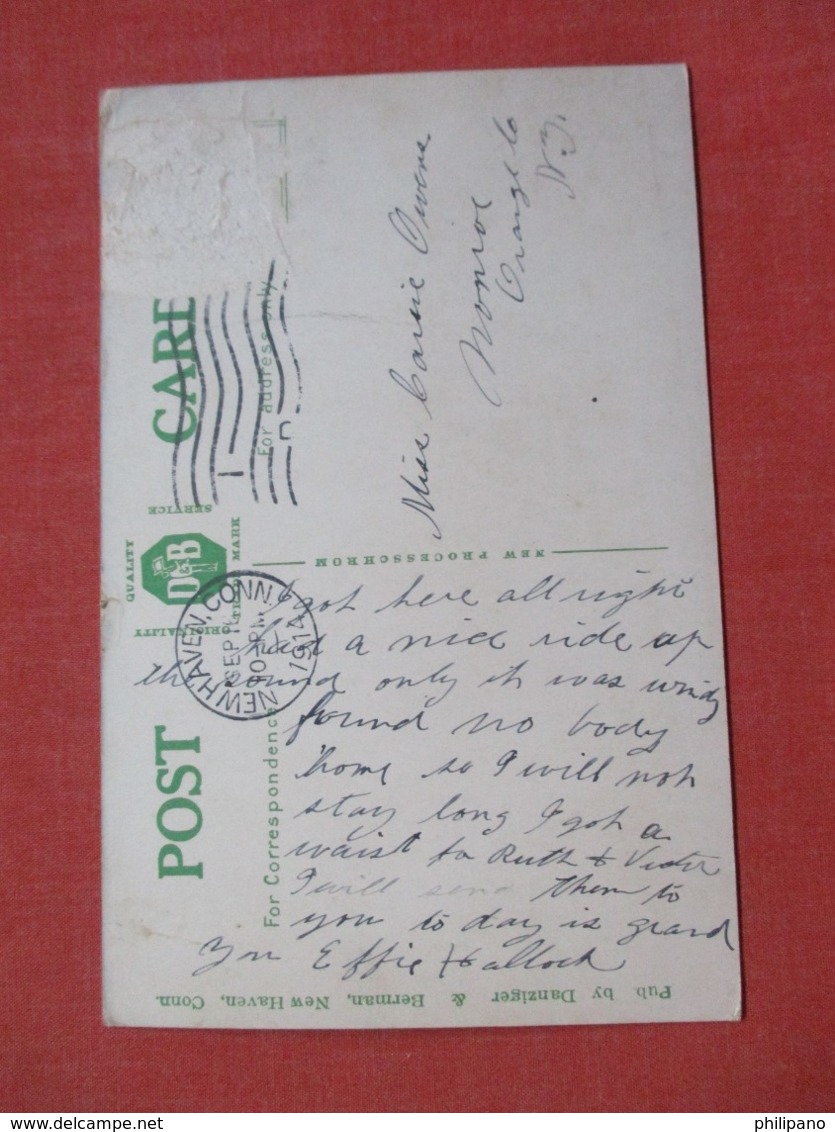 POST CARD
QUALITY
ORIGINALITY
SERVICE
TRADE MARK
D&B
For Correspondence
For address only
NEW HAVEN, CONN.
SEP 1
PM
1914
I got here all right
had a nice ride up
the sound only it was windy
found no body
home so I will not
stay long I got a
waist to Ruth &
I will send them to
you to day is grand
You Effie Hallock
NEW PROCESSCHROM
Miss Carrie Owens
Monroe
Orange Co
N.Y.
Pub. by Danziger & Berman, New Haven, Conn.
philipano
delcampe.net